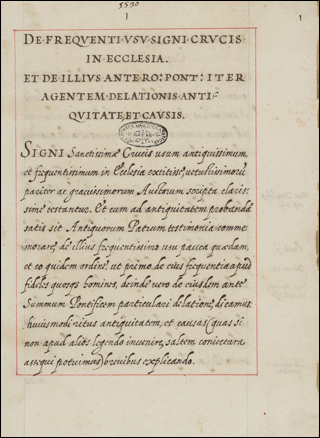 5530
1
DE FREQVENTI VSV SIGNI CRVCIS
IN ECCLESIA.
ET DE ILLIVS ANTE RO: PONT: ITER
AGENTEM DELATIONIS ANTI-
QVITATE ET CAVSIS.
SIGNI Sanctissimæ Crucis usum antiquissimum
et frequentissimum in Ecclesia extitisse, uetustissimorũ
pariter ac grauissimorum Auctorum scripta claris-
sime testantur. Et cum ad antiquitatem probandã
satis sit Antiquorum Patrum testimonia comme
morare, de illius frequentissimo usu pauca quædam,
et eo quidem ordine, ut primo de eius frequentia apud
fideles quosq homines, deinde uero de eiusdem ante
Summum Pontificem particulari delatione, dicamus
huiusmodi ritus antiquitatem, et causas (quas si
non apud alios legendo inuenire, saltem coniectura
assequi potuimus) breuibus explicando.